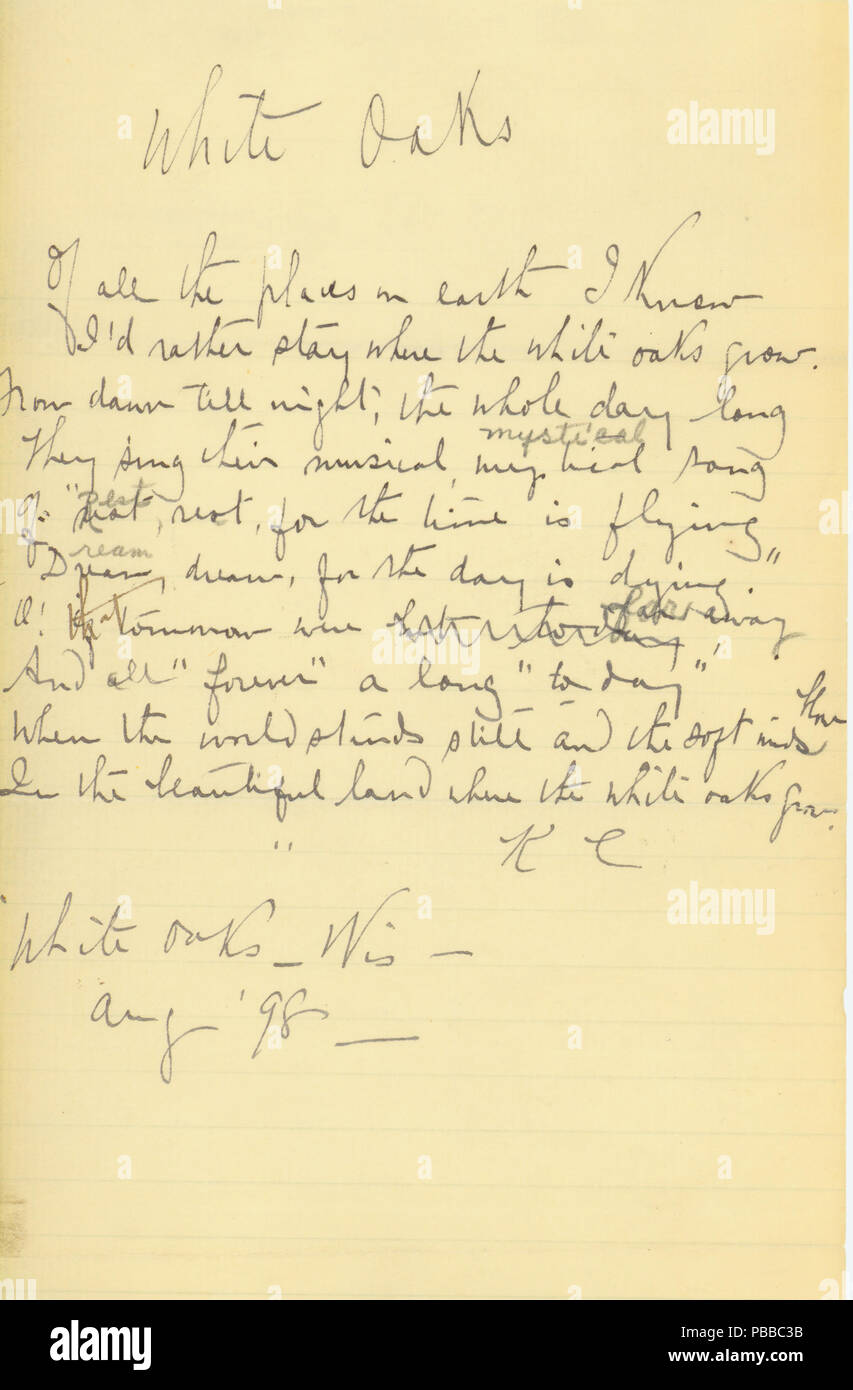 White Oaks
Of all the places on earth I know
I'd rather stay where the white oaks grow.
From dawn till night, the whole day long
mystical
They sing their musical, mystical song
Rest
Of "rest, rest, for the time is flying
ream
Dream, dream, for the day is dying."
O! if tomorrow were far away
And all "forever" a long "to day",
When the world stands still and the soft winds blow
In the beautiful land where the white oaks grow.
" K C
White Oaks - Wis -
Aug '98 —
alamy
alamy
Image ID: PBBC3B
www.alamy.com